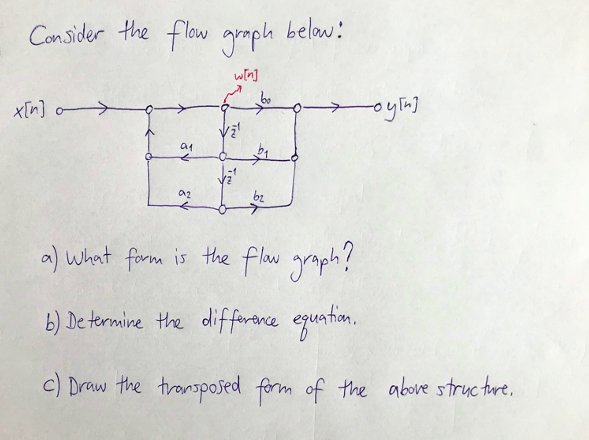 Consider the flow graph below:
w[n]
x[n] b0 y[n]
z^-1
a1 b1
z^-1
a2 b2
a) What form is the flow graph?
b) Determine the difference equation.
c) Draw the transposed form of the above structure.